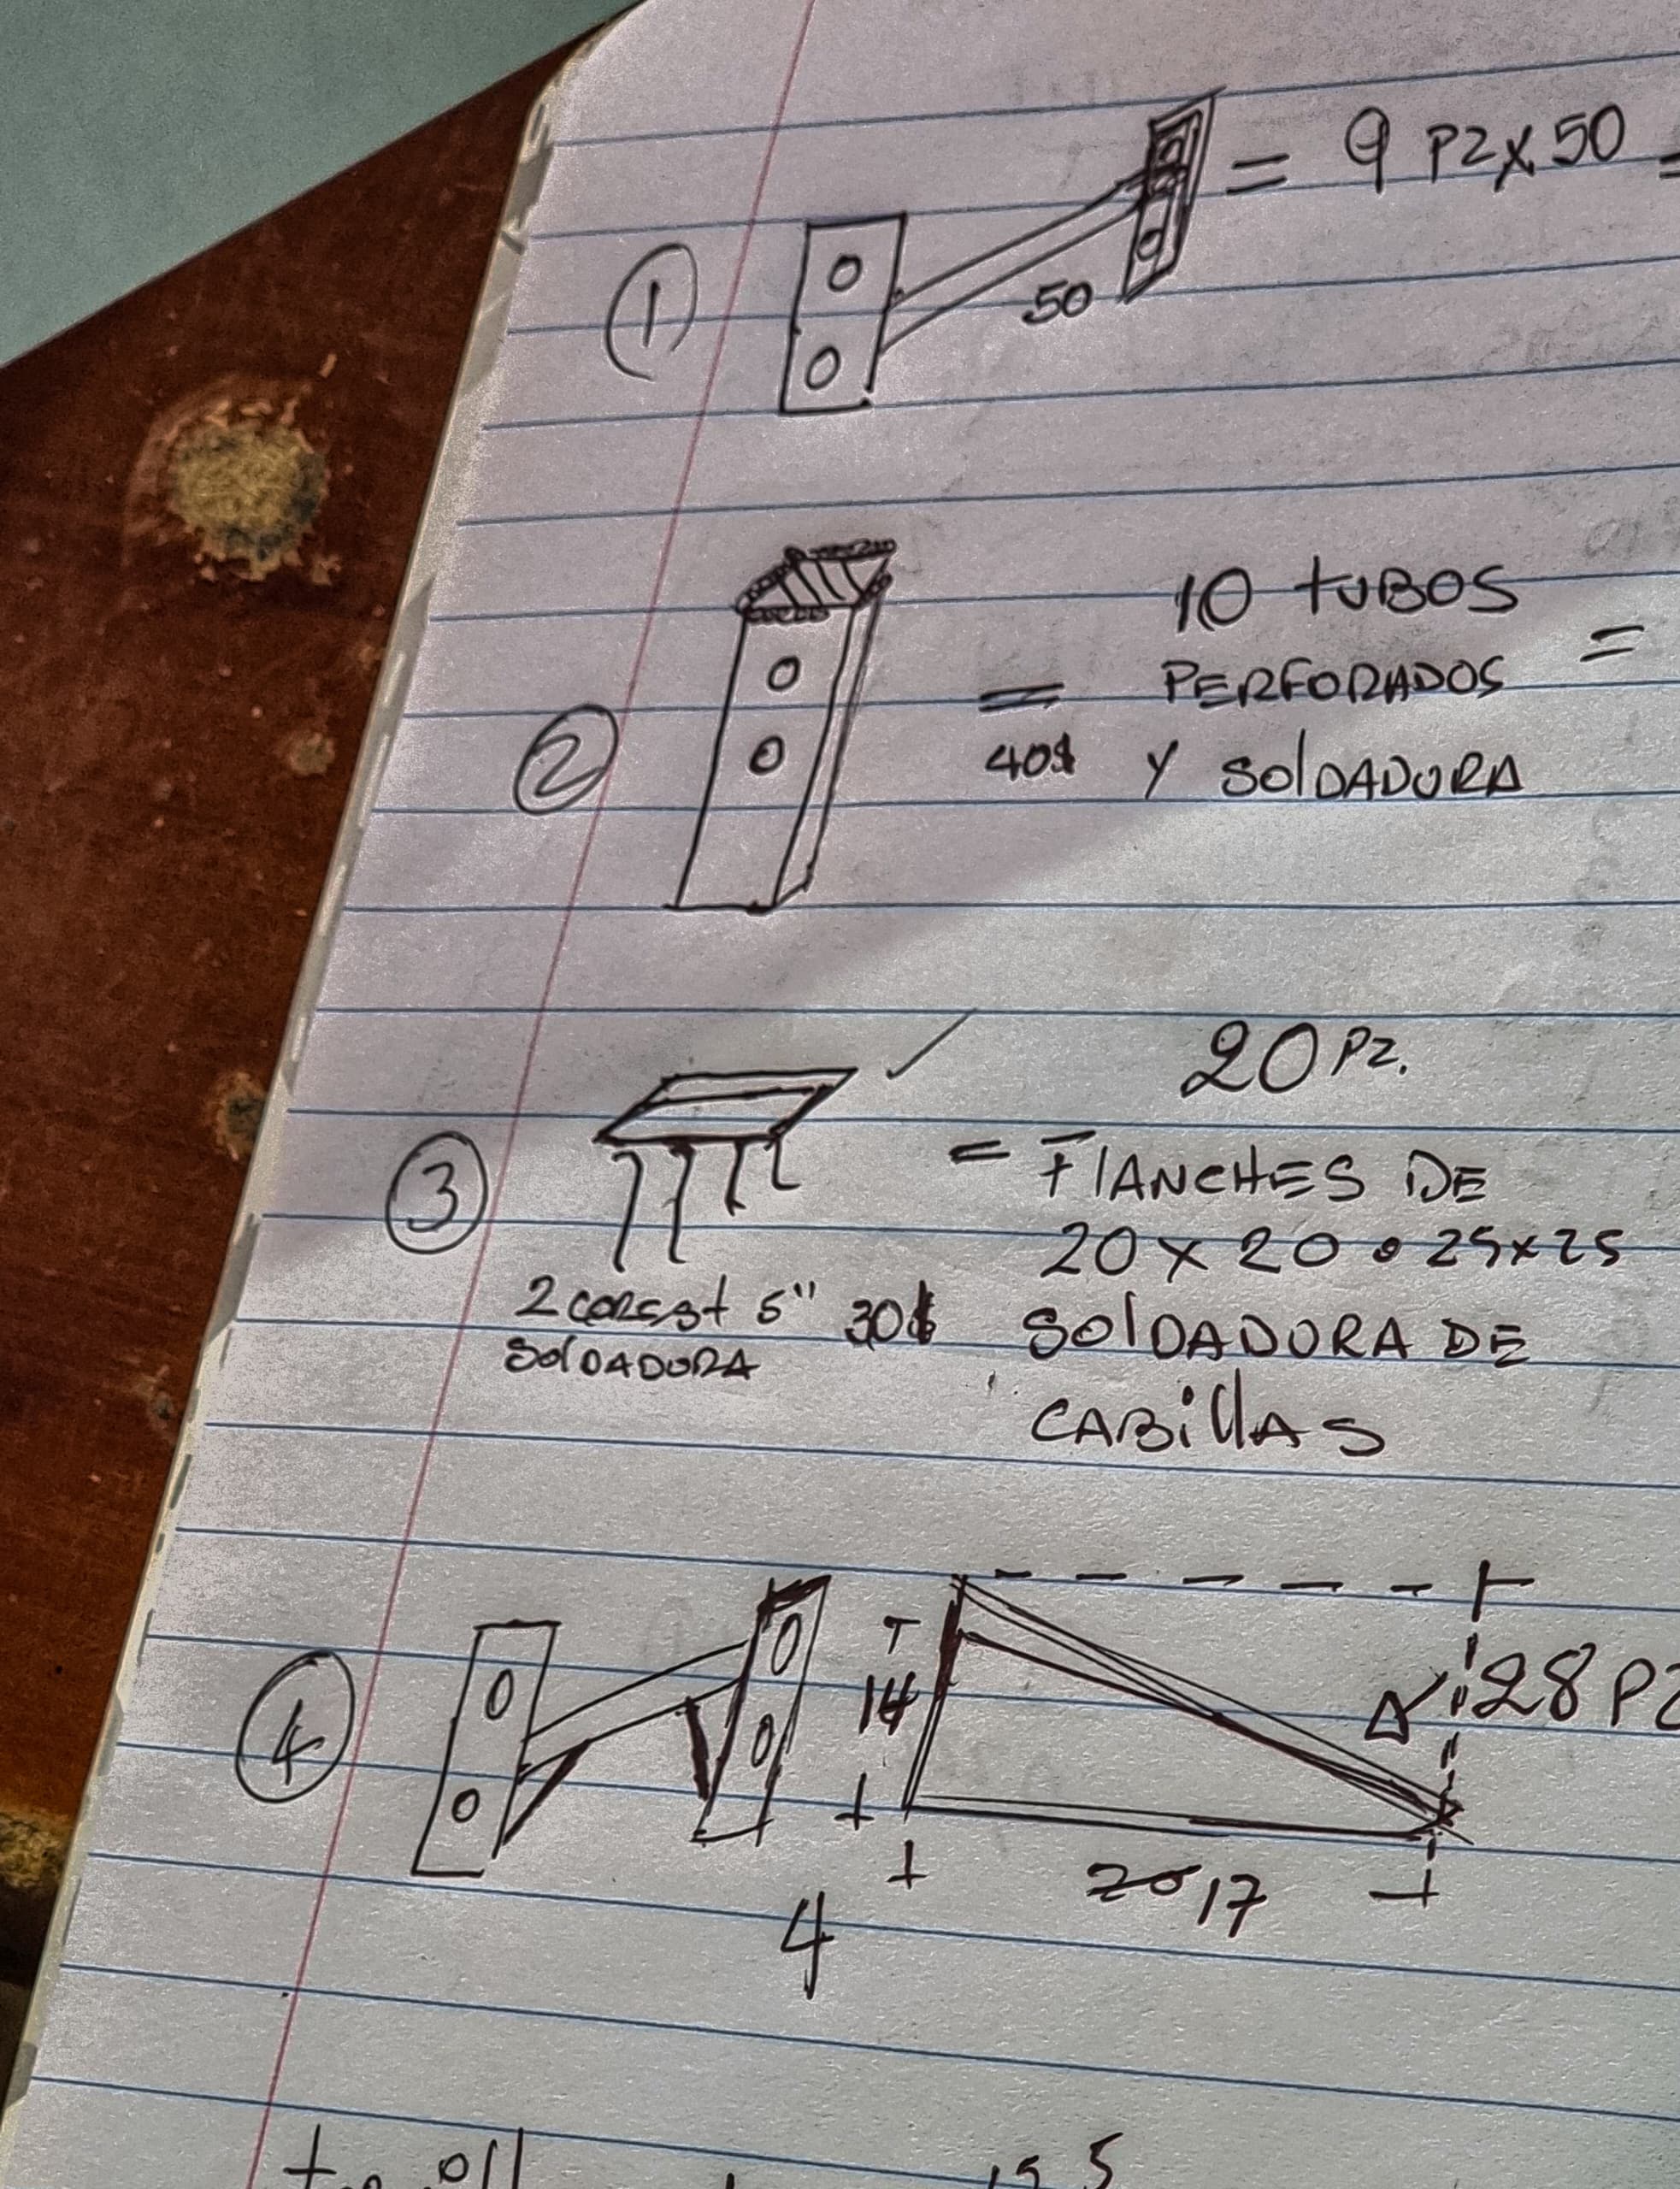 ① 50 = 9 PZ X 50 =
② = 10 TUBOS
PERFORADOS =
40$ Y SOLDADURA
20 PZ.
③ = FLANCHES DE
20 X 20 o 25 X 25
2 5" 30$ SOLDADURA DE
SOLDADURA
CABILLAS
④ 14 28 PZ
20 17
4